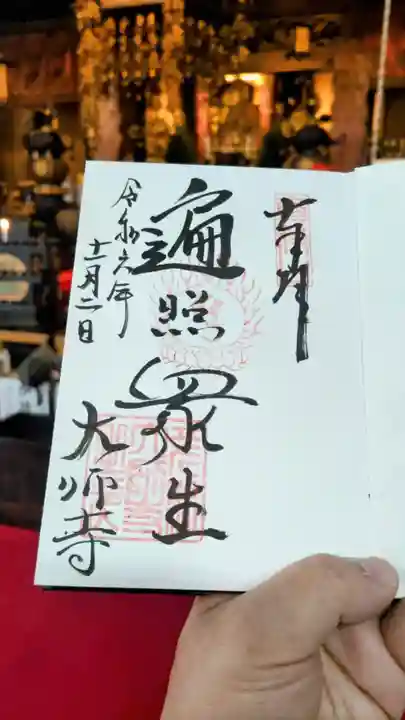 奉拝
遍照衆生
令和六年
十二月二日
大師寺